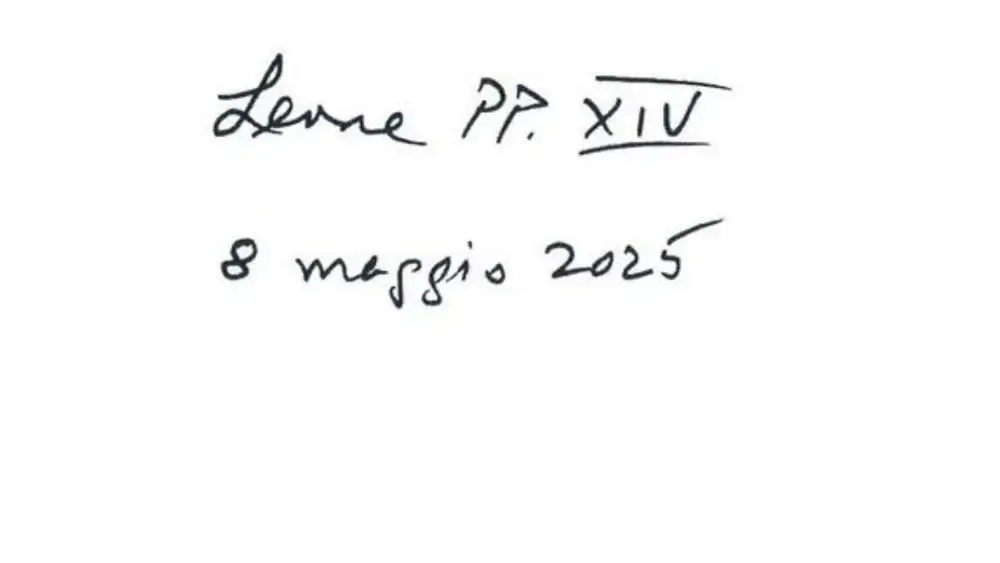 Leone PP. XIV
8 maggio 2025